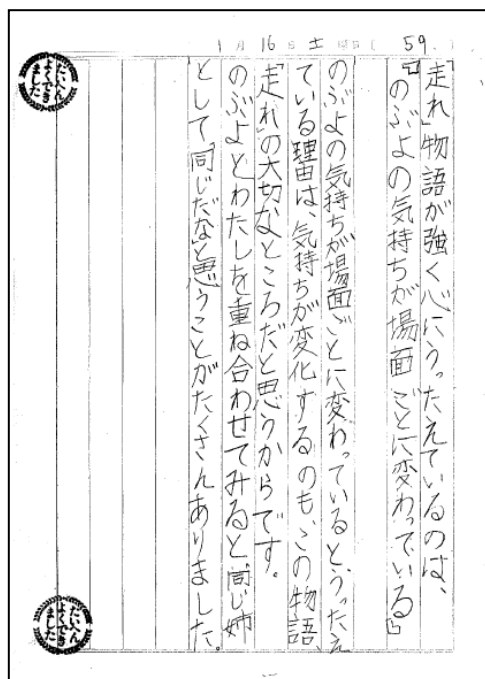 1月16日土曜日(59.)
「走れ」物語が強く心にうったえているのは、
『のぶよの気持ちが場面ごとに変わっている』
のぶよの気持ちが場面ごとに変わっていると、うったえ
ている理由は、気持ちが変化するのも、この物語、
「走れ」の大切なところだと思うからです。
のぶよとわたしを重ね合わせてみると、「同じ姉
として、同じだな」と思うことがたくさんありました。
たいへん
よくでき
ました
たいへん
よくでき
ました